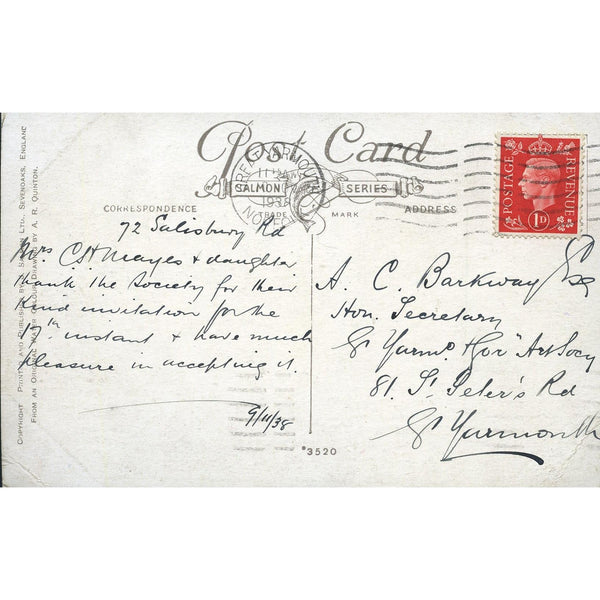 Post Card
GREAT YARMOUTH
1938
SALMON SERIES
TRADE MARK
CORRESPONDENCE
ADDRESS
POSTAGE REVENUE
1D
72 Salisbury Rd
Mrs C H Mayes & daughter
thank the Society for their
kind invitation for the
instant & have much
pleasure in accepting it.
9/11/38
A. C. Barkway Esq
Hon. Secretary
Gt Yarmo & Gor Art Socy
81. St Peter's Rd
Gt Yarmouth
*3520
COPYRIGHT PRINTED AND PUBLISHED BY LTD., SEVENOAKS, ENGLAND
FROM AN ORIGINAL WATER COLOUR DRAWING BY A. R. QUINTON.